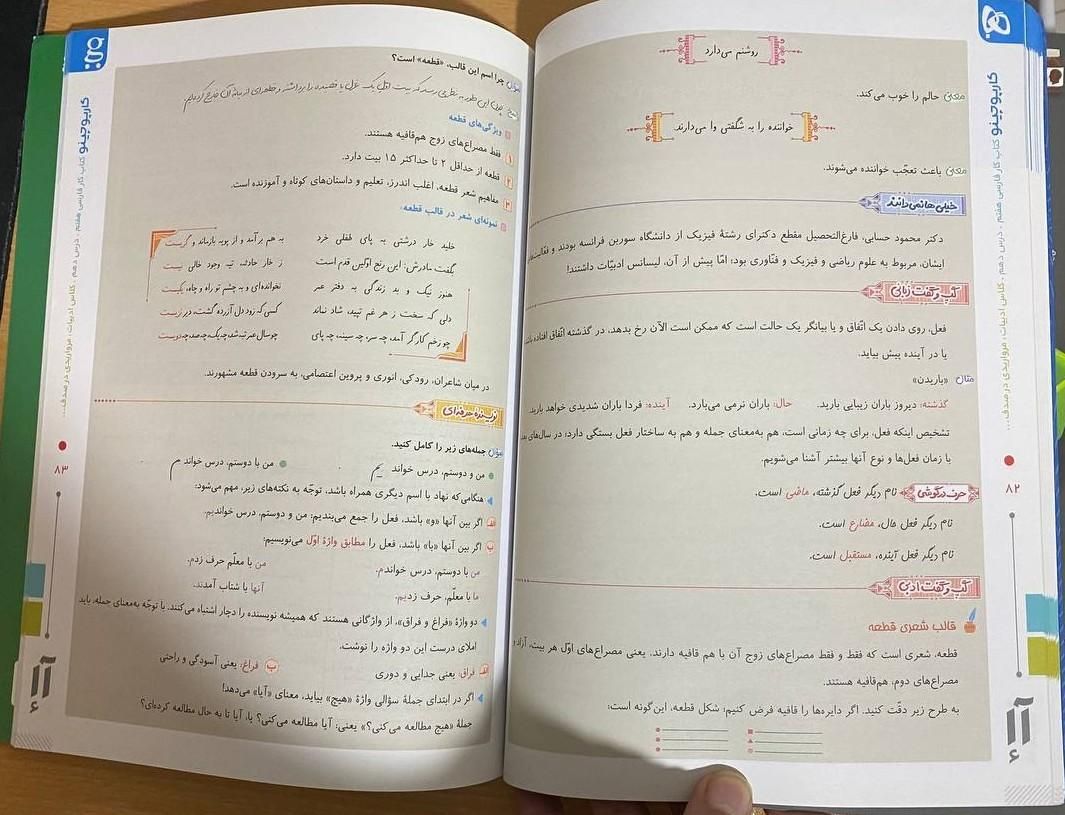 روشنم می‌دارد
معنی حالم را خوب می‌کند.
خواننده را به شگفتی وا می‌دارند
معنی باعث تعجّب خواننده می‌شوند.
خیلی‌ها نمی‌دانند
دکتر محمود حسابی، فارغ‌التحصیل مقطع دکترای رشتهٔ فیزیک از دانشگاه سوربن فرانسه بودند و فعّالیت‌های
ایشان، مربوط به علوم ریاضی و فیزیک و فنّاوری بود؛ امّا پیش از آن، لیسانس ادبیّات داشتند!
گپ و گفت زبانی
فعل، روی دادن یک اتّفاق و یا بیانگر یک حالت است که ممکن است الآن رخ بدهد، در گذشته اتّفاق افتاده باشد
یا در آینده پیش بیاید.
مثال «باریدن»
گذشته: دیروز باران زیبایی بارید. حال: باران نرمی می‌بارد. آینده: فردا باران شدیدی خواهد بارید.
تشخیص اینکه فعل، برای چه زمانی است، هم به‌معنای جمله و هم به ساختار فعل بستگی دارد؛ در سال‌های بعد
با زمان فعل‌ها و نوع آنها بیشتر آشنا می‌شویم.
حرف درگوشی نام دیگر فعل گذشته، ماضی است.
نام دیگر فعل حال، مضارع است.
نام دیگر فعل آینده، مستقبل است.
گپ و گفت ادبی
قالب شعری قطعه
قطعه، شعری است که فقط و فقط مصراع‌های زوج آن با هم قافیه دارند. یعنی مصراع‌های اوّل هر بیت، آزاد و
مصراع‌های دوم، هم‌قافیه هستند.
به طرح زیر دقّت کنید. اگر دایره‌ها را قافیه فرض کنیم؛ شکل قطعه، این‌گونه است:
کارپوچینو کتاب کار فارسی هفتم . درس دهم . کلاس ادبیات، مرواریدی در صدف...
۸۲
سؤال چرا اسم این قالب، «قطعه» است؟
ویژگی‌های قطعه
۱ فقط مصراع‌های زوج هم‌قافیه هستند.
۲ قطعه از حداقل ۲ تا حداکثر ۱۵ بیت دارد.
۳ مفاهیم شعر قطعه، اغلب اندرز، تعلیم و داستان‌های کوتاه و آموزنده است.
نمونه‌ای شعر در قالب قطعه:
خلید خار درشتی به پای طفلی خرد به هم برآمد و از پویه بازماند و گریست
بگفت مادرش: این رنج اوّلین قدم است ز خار حادثه، تیه وجود خالی نیست
هنوز نیک و بد زندگی به دفتر عمر نخوانده‌ای و به چشم تو راه و چاه، یکیست
دلی که سخت ز هر غم تپید، شاد نماند کسی که زود دل آزرده گشت، دیر نزیست
چو زخم کارگر آمد، چه سر، چه سینه، چه پای چو سال عمر تبه شد، چه یک، چه صد، چه دویست
در میان شاعران، رودکی، انوری و پروین اعتصامی، به سرودن قطعه مشهورند.
نویسندهٔ حرفه‌ای
سؤال جمله‌های زیر را کامل کنید.
من و دوستم، درس خواند یم من با دوستم، درس خواند م
هنگامی‌که نهاد با اسم دیگری همراه باشد، توجّه به نکته‌های زیر، مهم می‌شود:
الف اگر بین آنها «و» باشد، فعل را جمع می‌بندیم: من و دوستم، درس خواندیم.
ب اگر بین آنها «با» باشد، فعل را مطابق واژهٔ اوّل می‌نویسیم:
من با دوستم، درس خواندم. من با معلّم حرف زدم.
ما با معلم، حرف زدیم. آنها با شتاب آمدند.
دو واژهٔ «فراغ و فراق»، از واژگانی هستند که همیشه نویسنده را دچار اشتباه می‌کنند. با توجّه به‌معنای جمله، باید
املای درست این دو واژه را نوشت.
الف فراق: یعنی جدایی و دوری ب فراغ: یعنی آسودگی و راحتی
اگر در ابتدای جملهٔ سؤالی واژهٔ «هیچ» بیاید، معنای «آیا» می‌دهد!
جملهٔ «هیچ مطالعه می‌کنی؟» یعنی: آیا مطالعه می‌کنی؟ یا، آیا تا به حال مطالعه کرده‌ای؟
کارپوچینو کتاب کار فارسی هفتم . درس دهم . کلاس ادبیات، مرواریدی در صدف...
۸۳